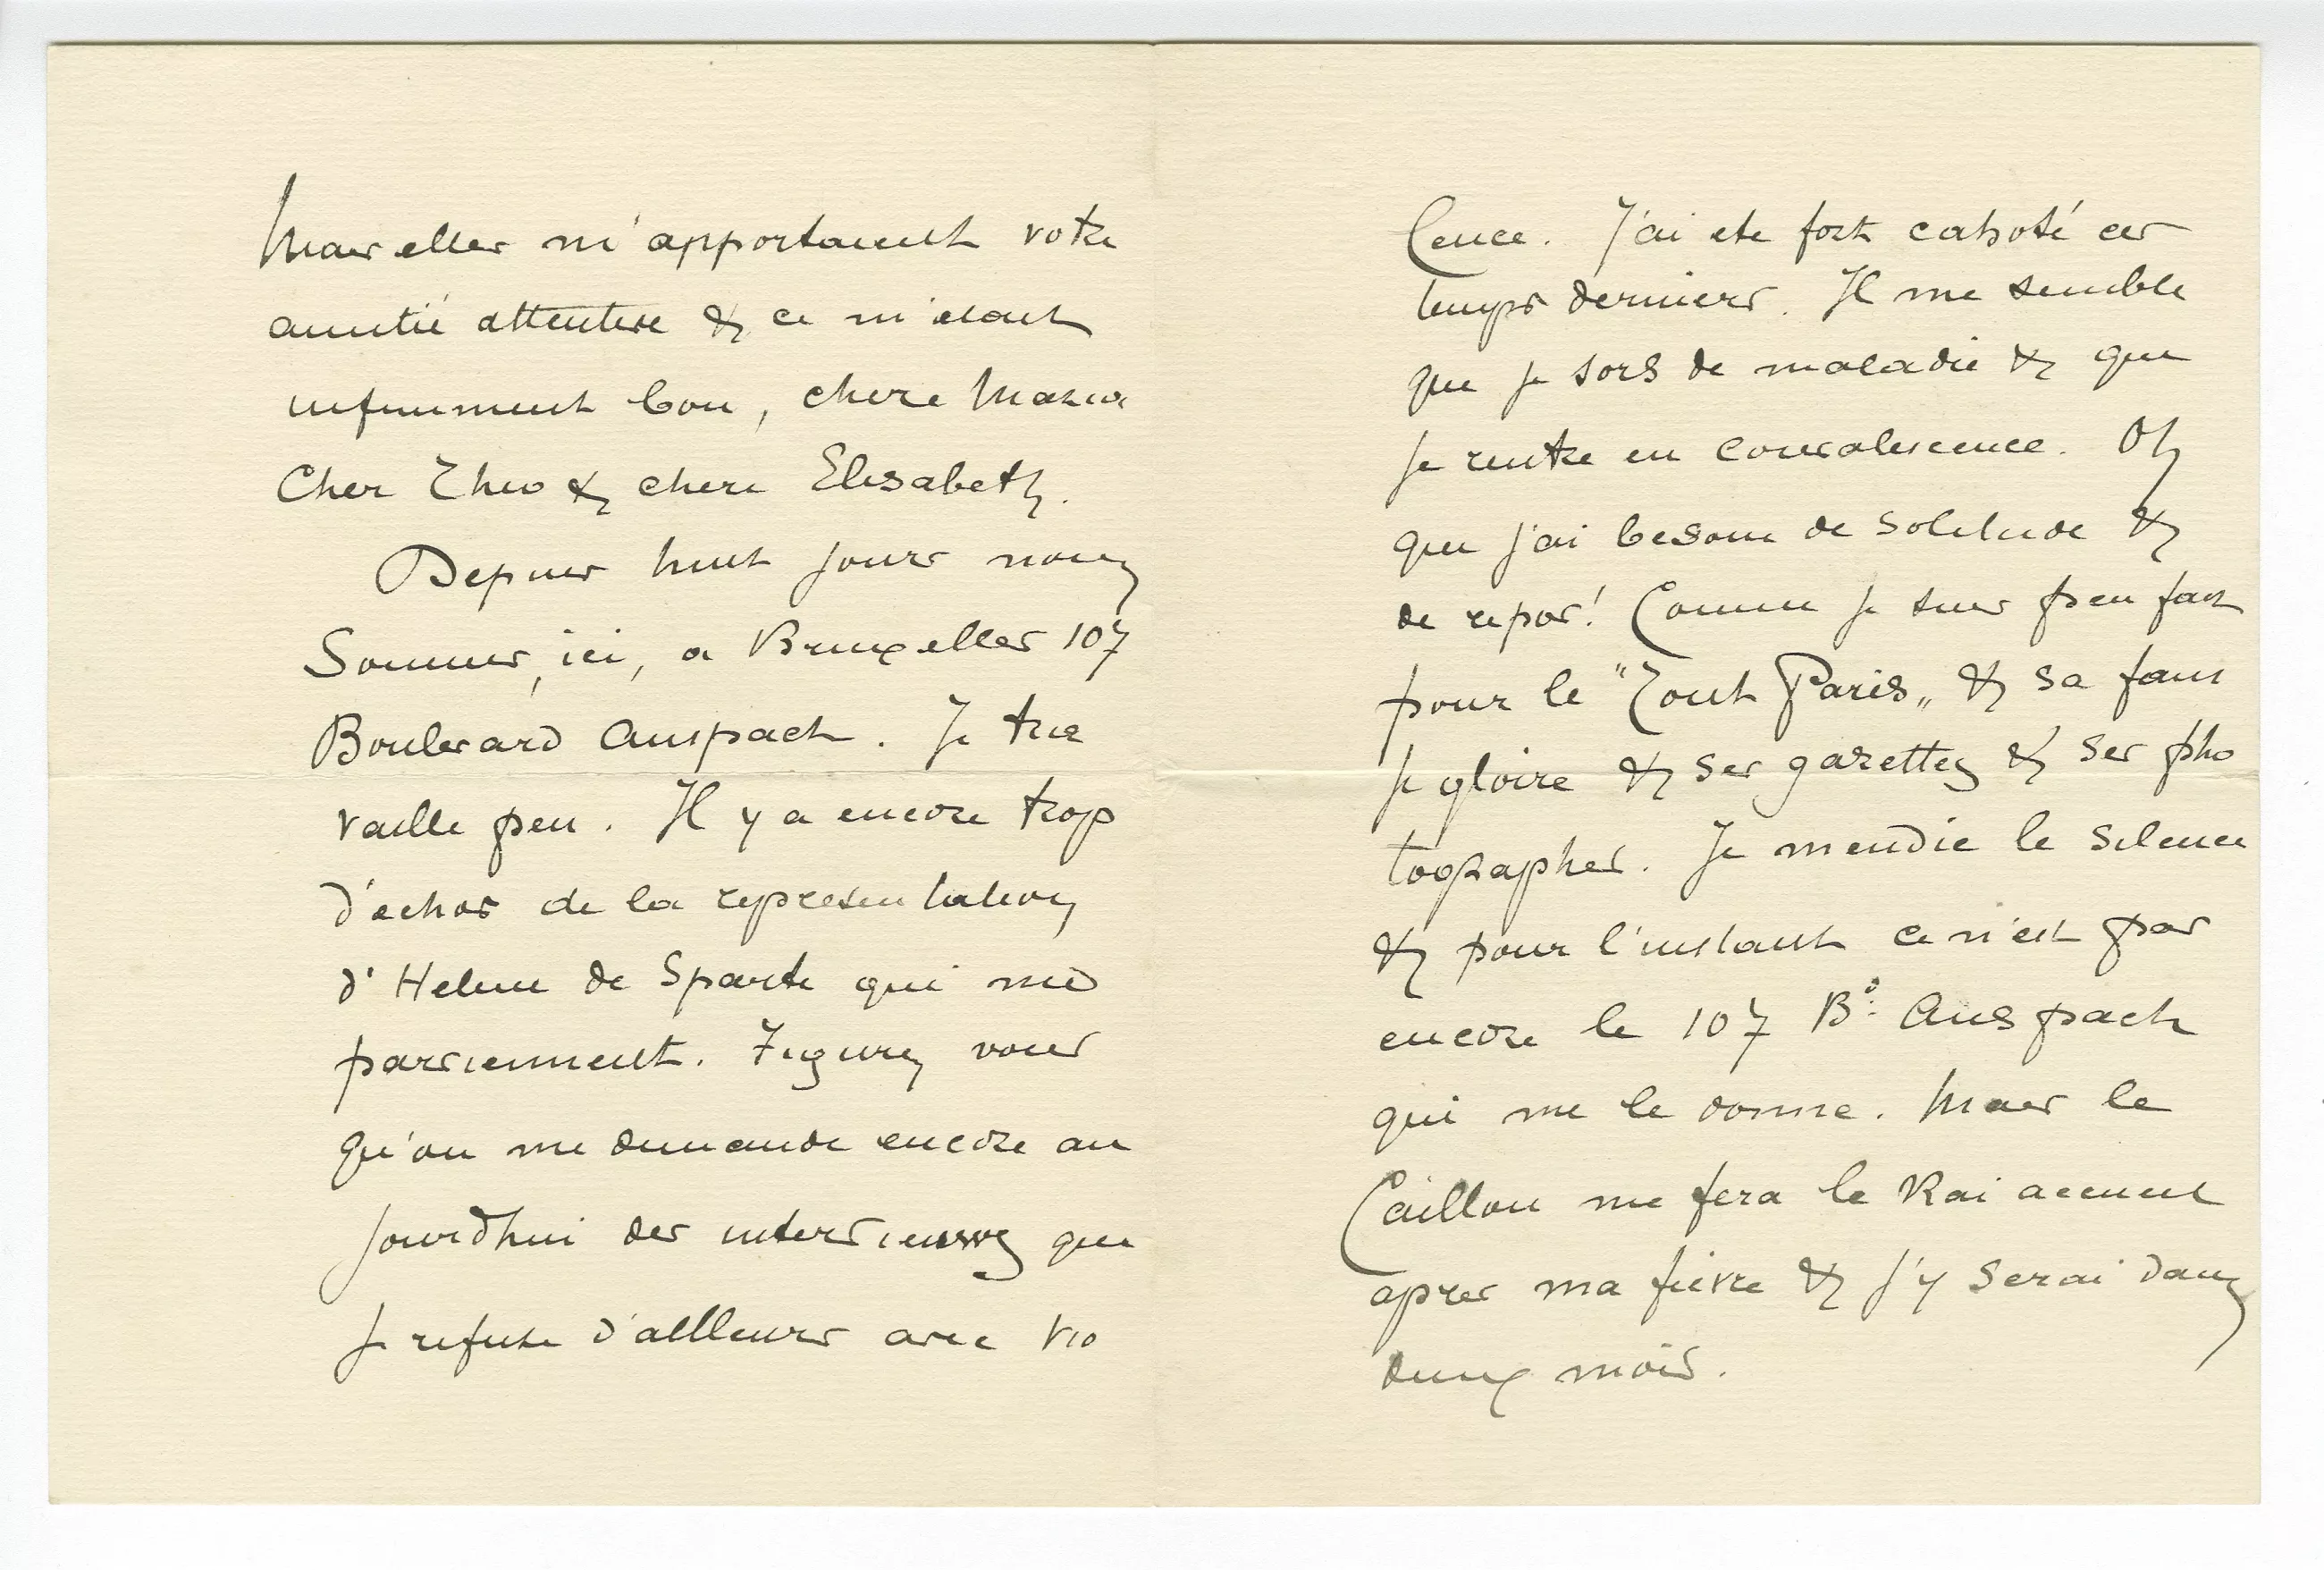 Mais elles m'apportaient votre
amitié attentive & ce m'étant
infiniment bon, chère Maria
Cher Théo & chere Elisabeth.
Depuis huit jours nous
Sommes, ici, a Bruxelles 107
Boulevard Anspach. Je tra
vaille peu. Il y a encore trop
d'échos de la representation
d'Helene de Sparte qui me
parviennent. Figurez vous
qu'on me demande encore au
jourd'hui des interviews que
je refuse d'ailleurs avec vio
lence. J'ai ete fort cahoté ces
temps derniers. Il me semble
que je sors de maladie & que
je rentre en convalescence. Oh
que j'ai besoin de solitude &
de repos! Comme je suis peu fait
pour le "Tout Paris" & sa faus
se gloire & ses gazettes & ses pho
tographes. Je mendie le silence
& pour l'instant ce n'est pas
encore le 107 Bd Anspach
qui me le donne. Mais le
Caillou me fera le vrai accueil
apres ma fievre & j'y serai dans
deux mois.